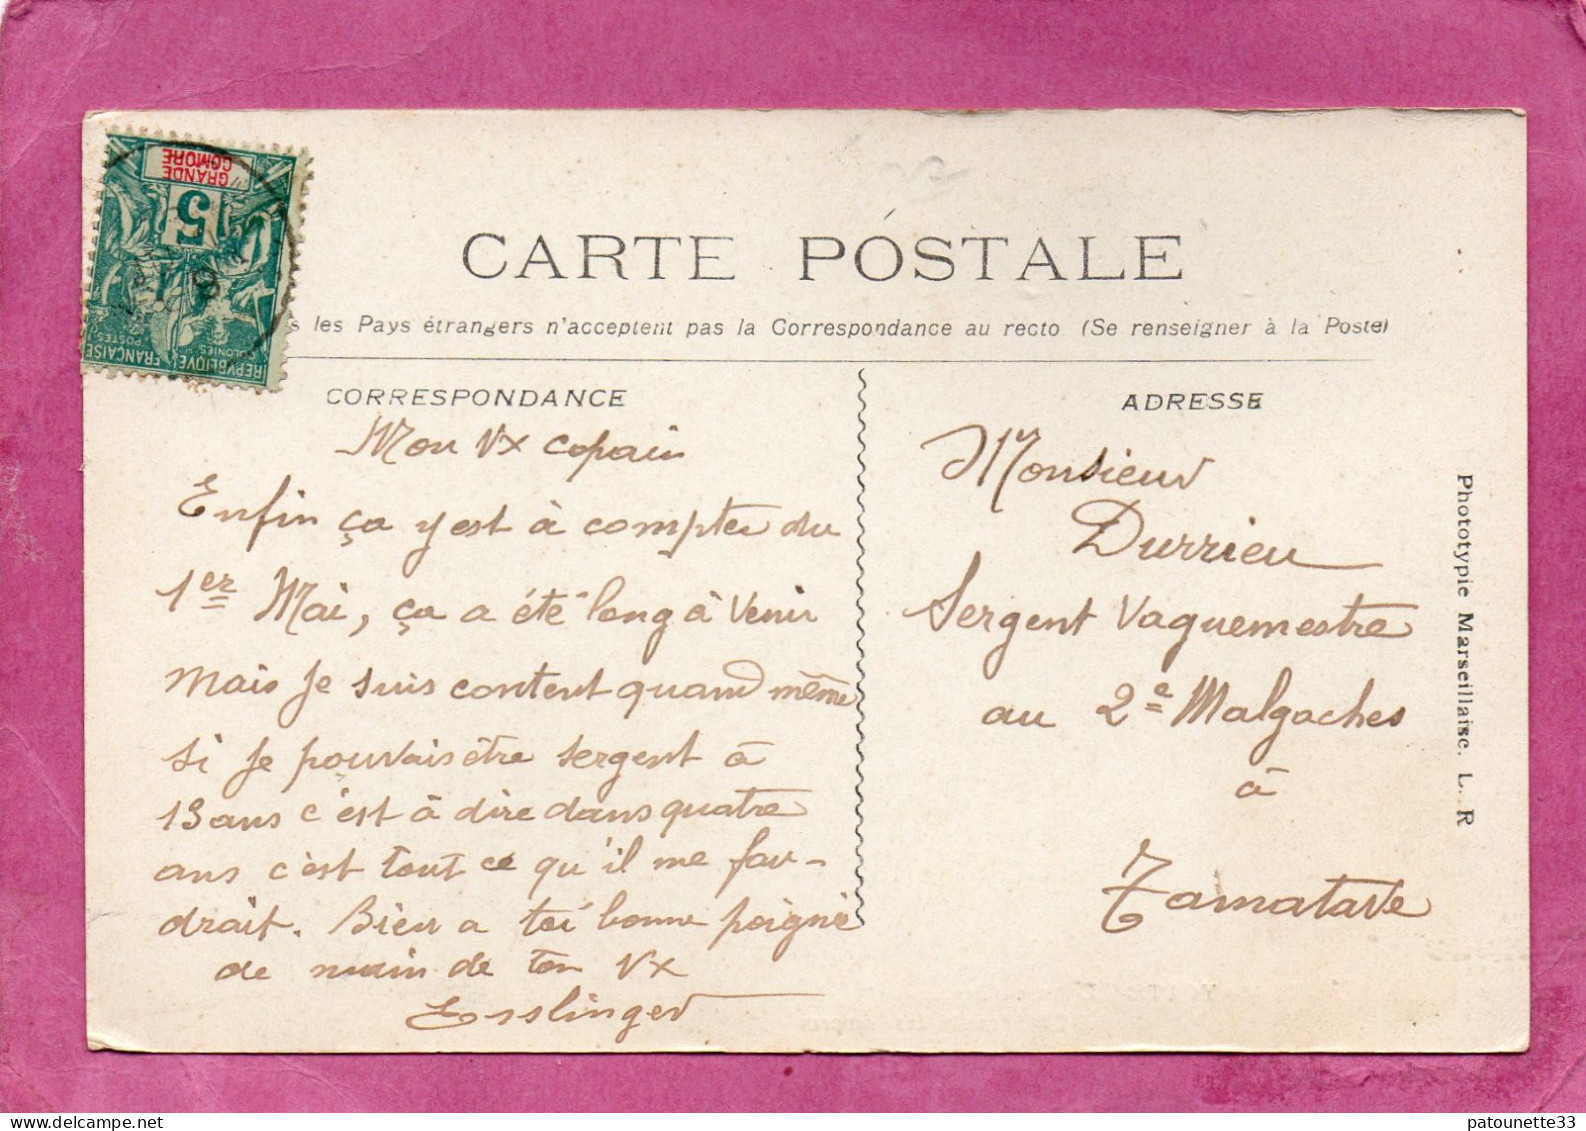 GRANDE
COMORE
5
RÉPUBLIQUE FRANÇAISE
COLONIES POSTES
CARTE POSTALE
s les Pays étrangers n'acceptent pas la Correspondance au recto (Se renseigner à la Poste)
CORRESPONDANCE
Mon Vx copain
Enfin ça y est à compter du
1er Mai, ça a été long à venir
mais je suis content quand même
si je pouvais être sergent à
13 ans c'est à dire dans quatre
ans c'est tout ce qu'il me fau-
drait. Bien a toi bonne poigné
de main de ton Vx
Esslinger
ADRESSE
Monsieur
Durrieu
Sergent Vaguemestre
au 2e Malgaches
à
Tamatave
Phototypie Marseillaise. L. R
patounette33